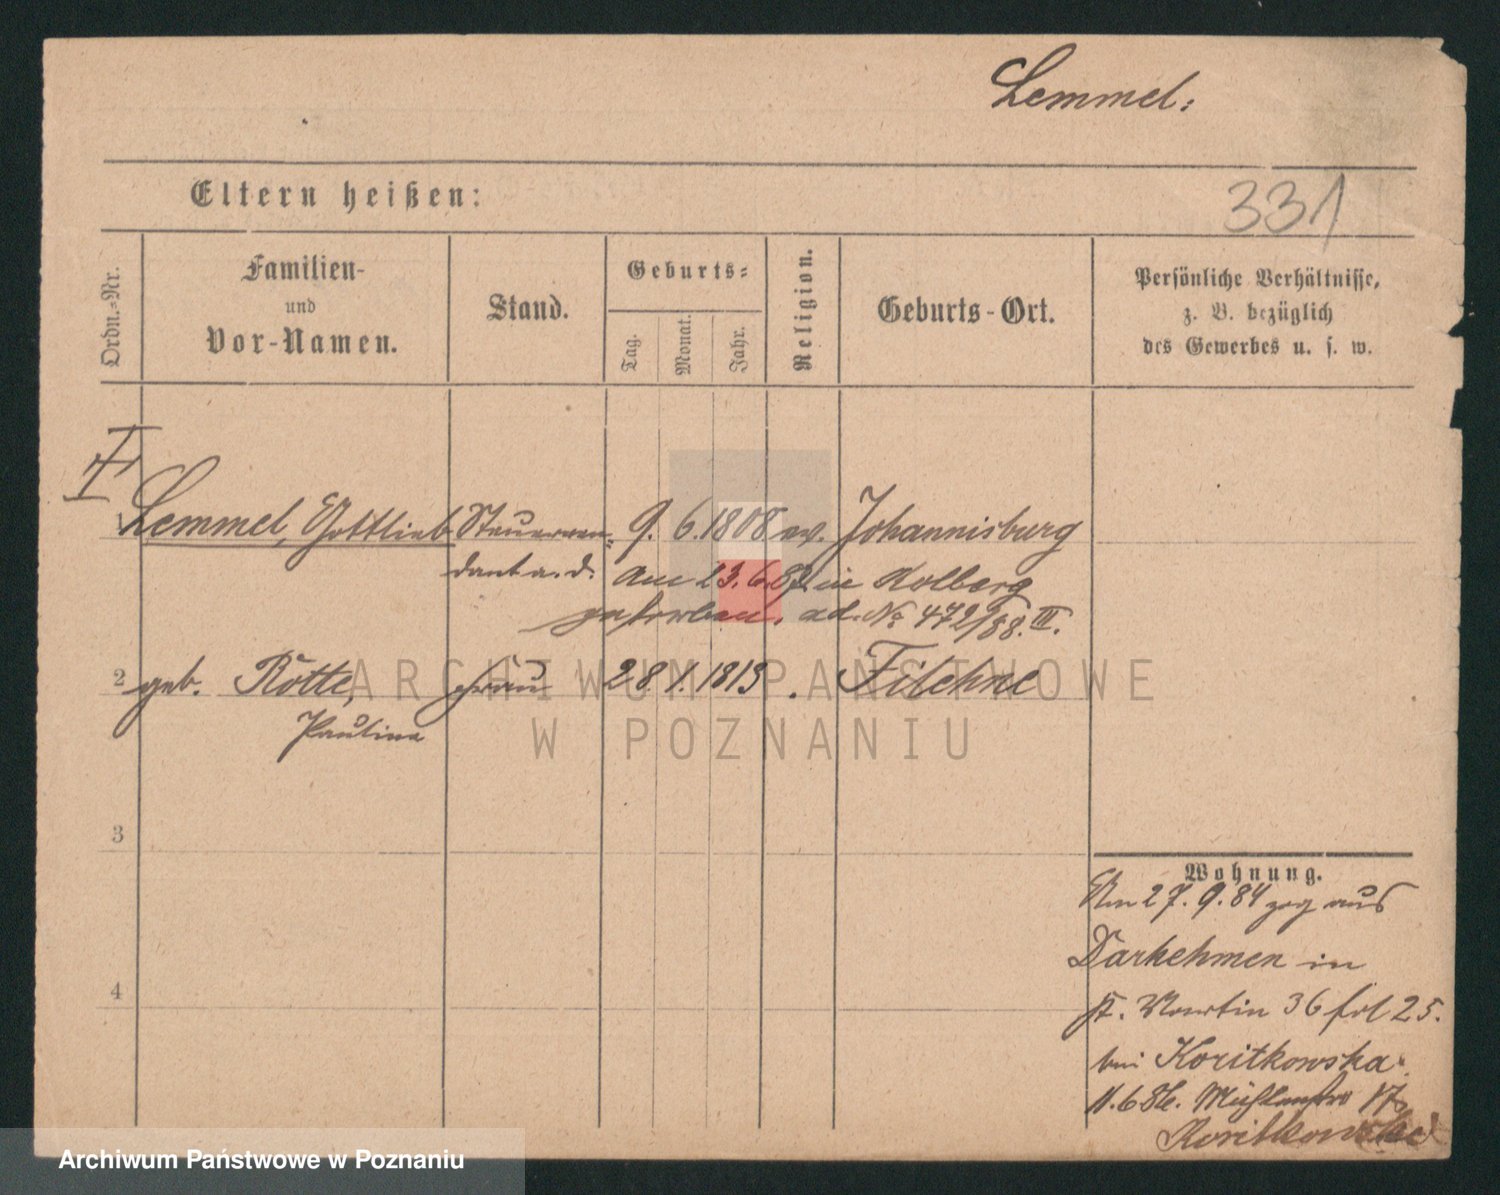 Lemmel:
Eltern heißen:
331
Ordn.-Nr.
Familien-
und
Vor-Namen.
Stand.
Geburts-
Tag.
Monat.
Jahr.
Religion.
Geburts-Ort.
Persönliche Verhältnisse,
z. B. bezüglich
des Gewerbes u. s. w.
1 Lemmel, Gottlieb Steueren- 9. 6. 1808 ev. Johannisburg
dant a. D. am 23. 6. 87 in Kolberg
gestorben. ad. No 472/88. III.
2 geb. Rotte, Frau 28. 1. 1813. Filehne
Pauline
ARCHIWUM PAŃSTWOWE
W POZNANIU
3
4
Wohnung.
Am 27. 9. 84 zog aus
Darkehmen in
St. Martin 36 fol 25.
bei Koritkowska.
11. 6 86. Mühlenstr 17
Archiwum Państwowe w Poznaniu